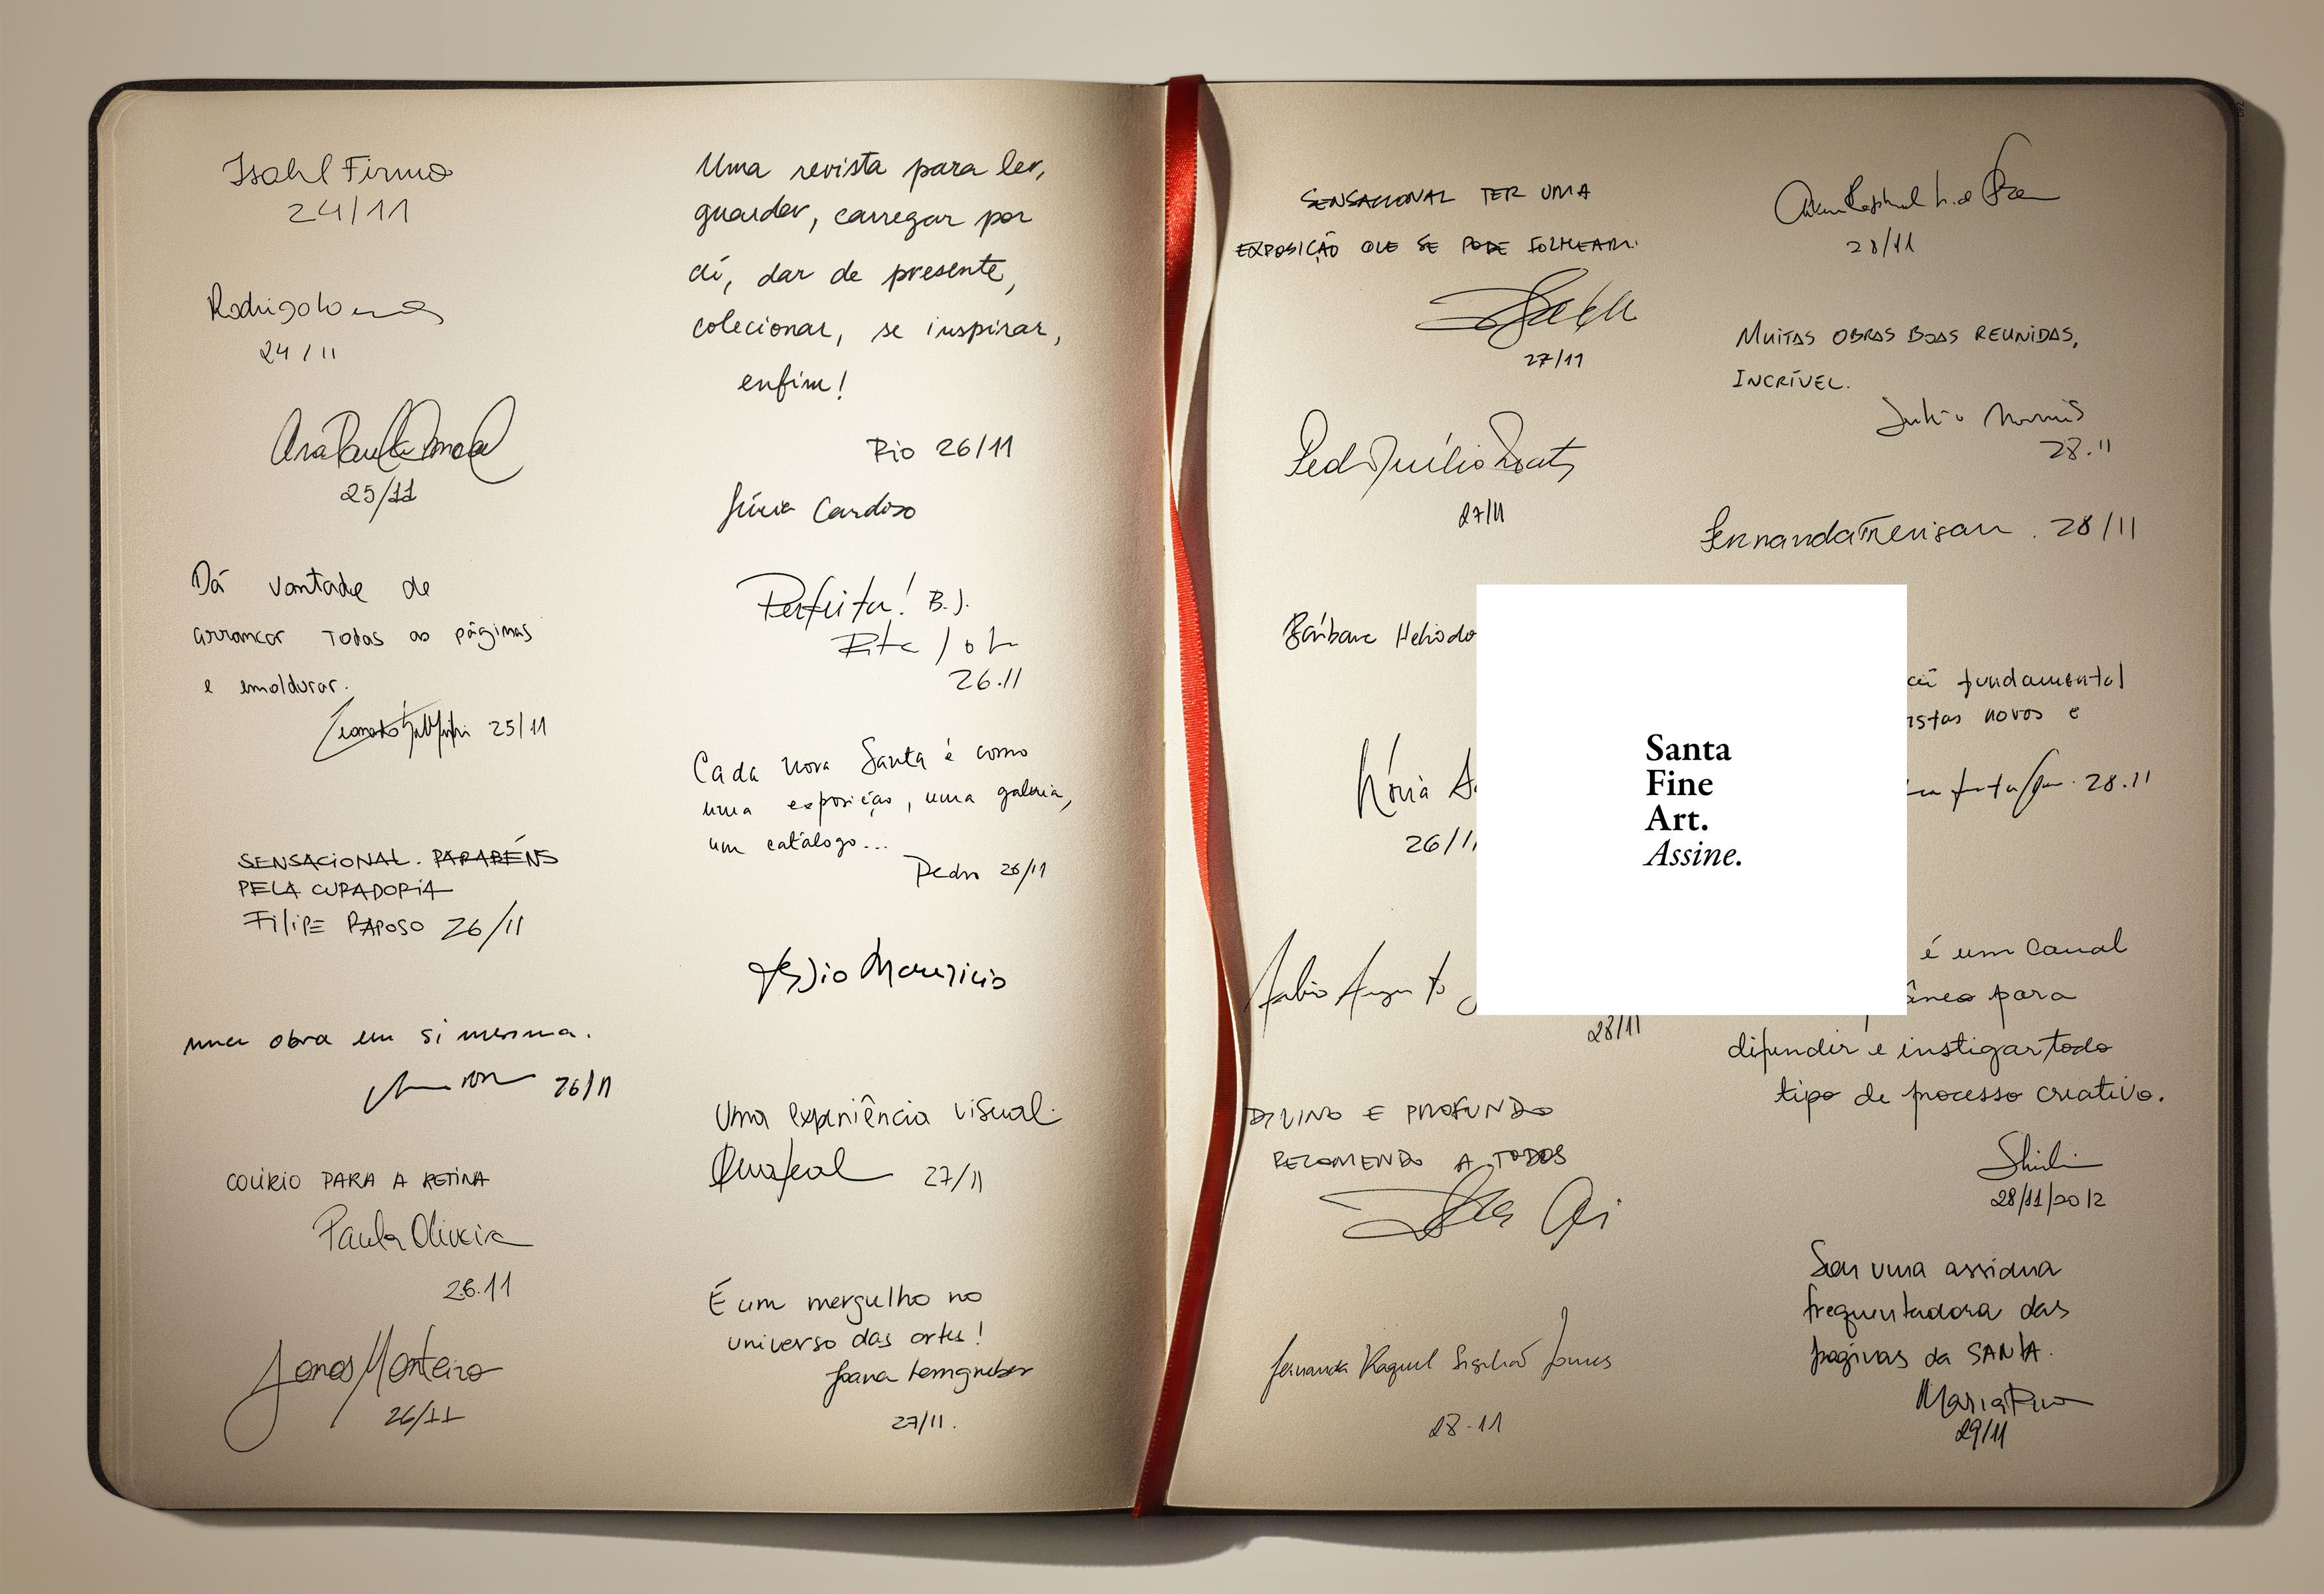 Isabel Firmo
24/11
Rodrigo
24/11
Ana Paula
25/11
Dá vontade de
arrancar todas as páginas
e emoldurar.
25/11
SENSACIONAL. PARABÉNS
PELA CURADORIA
FILIPE RAPOSO 26/11
uma obra em si mesma.
26/11
COLÍRIO PARA A RETINA
Paula Oliveira
26.11
Jonas Monteiro
26/11
Uma revista para ler,
guardar, carregar por
aí, dar de presente,
colecionar, se inspirar,
enfim!
Rio 26/11
Cardoso
Perfeita! B.J.
26.11
Cada nova Santa é como
uma exposição, uma galeria,
um catálogo...
Pedro 26/11
Mauricio
Uma experiência visual.
27/11
É um mergulho no
universo das artes!
Joana
27/11.
SENSACIONAL TER UMA
EXPOSIÇÃO QUE SE PODE FOLHEAR.
27/11
27/11
Bárbara Heliodo
26/11
28/11
DIVINO E PROFUNDO
RECOMENDO A TODOS
Fernanda Raquel
28.11
28/11
MUITAS OBRAS BOAS REUNIDAS,
INCRÍVEL.
28.11
Fernanda Trevisan. 28/11
fundamental
istas novos e
28.11
Santa
Fine
Art.
Assine.
é um canal
âneo para
difundir e instigar todo
tipo de processo criativo.
28/11/2012
Sou uma assídua
frequentadora das
páginas da SANTA.
Maria
29/11